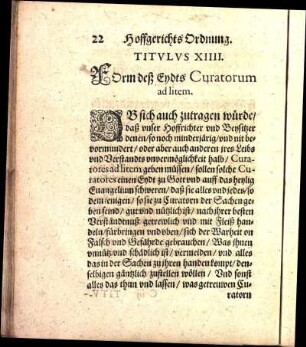 22 Hoffgerichts Ordnung.
TITVLVS XIIII.
Form deß Eydts Curatorum
ad litem.
OB sich auch zutragen würde/
daß vnser Hoffrichter vnd Beysitzer
denen/ so noch minderjärig/ vnd nit be-
vormundert/ oder aber auch anderen jres Leibs
vnd Verstandts vnvermöglichkeit halb/ Cura-
tores ad litem geben müssen/ sollen solche Cu-
ratores einen Eydt zu Gott vnd auff das heylig
Euangelium schweren/ daß sie alles vnd jedes/ so
dem jenigen/ so sie zu Curatorn der Sachen ge-
ben seind/ gut vnd nützlich ist/ nach jhrer besten
Verständnuß getrewlich vnd mit Fleiß hand-
len/ fürbringen vnd vben/ sich der Warheit on
Falsch vnd Gefährde gebrauchen/ Was jhnen
vnnütz vnd schädlich ist/ vermeiden/ vnd alles
das in der Sachen zu jhren handen kompt/ den-
selbigen gäntzlich zustellen wöllen/ Vnd sonst
alles das thun vnd lassen/ was getrewen Cu-
ratorn